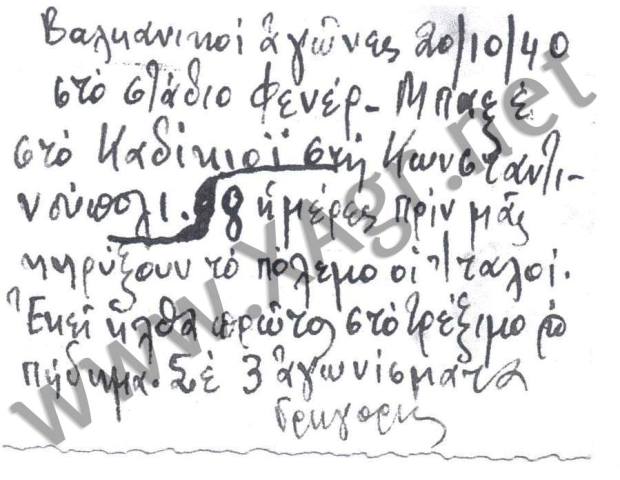 Βαλκανικοί ἀγῶνες 20/10/40
στὸ στάδιο Φενέρ-Μπαξὲ
στὸ Καδίκιοϊ στὴ Κωνσταντι-
νούπολι. 8 ἡμέρες πρὶν μᾶς
κηρύξουν τὸ πόλεμο οἱ Ἰταλοί.
Ἐκεῖ ἦλθα πρῶτος στὸ τρέξιμο
πήδημα. Σὲ 3 ἀγωνίσματα
Γρηγόρης
www.XAgr.net